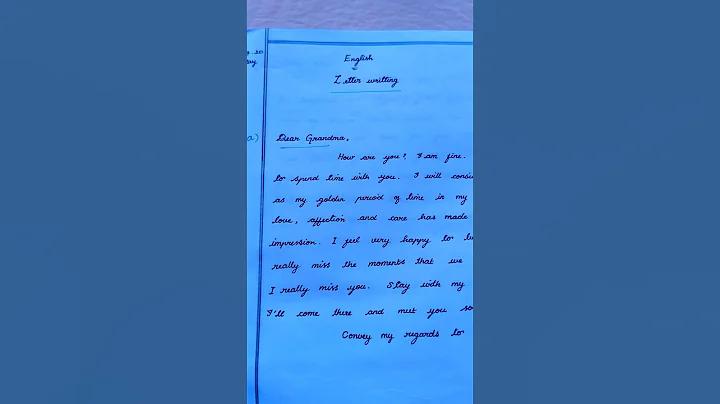 English
Letter writting
a)
Dear Grandma,
How are you? I am fine.
to spend time with you. I will
as my golden period of time in my
love, affection and care has made
impression. I feel very happy to
really miss the moments that we
I really miss you. Stay with my
I'll come there and meet you
Convey my regards to